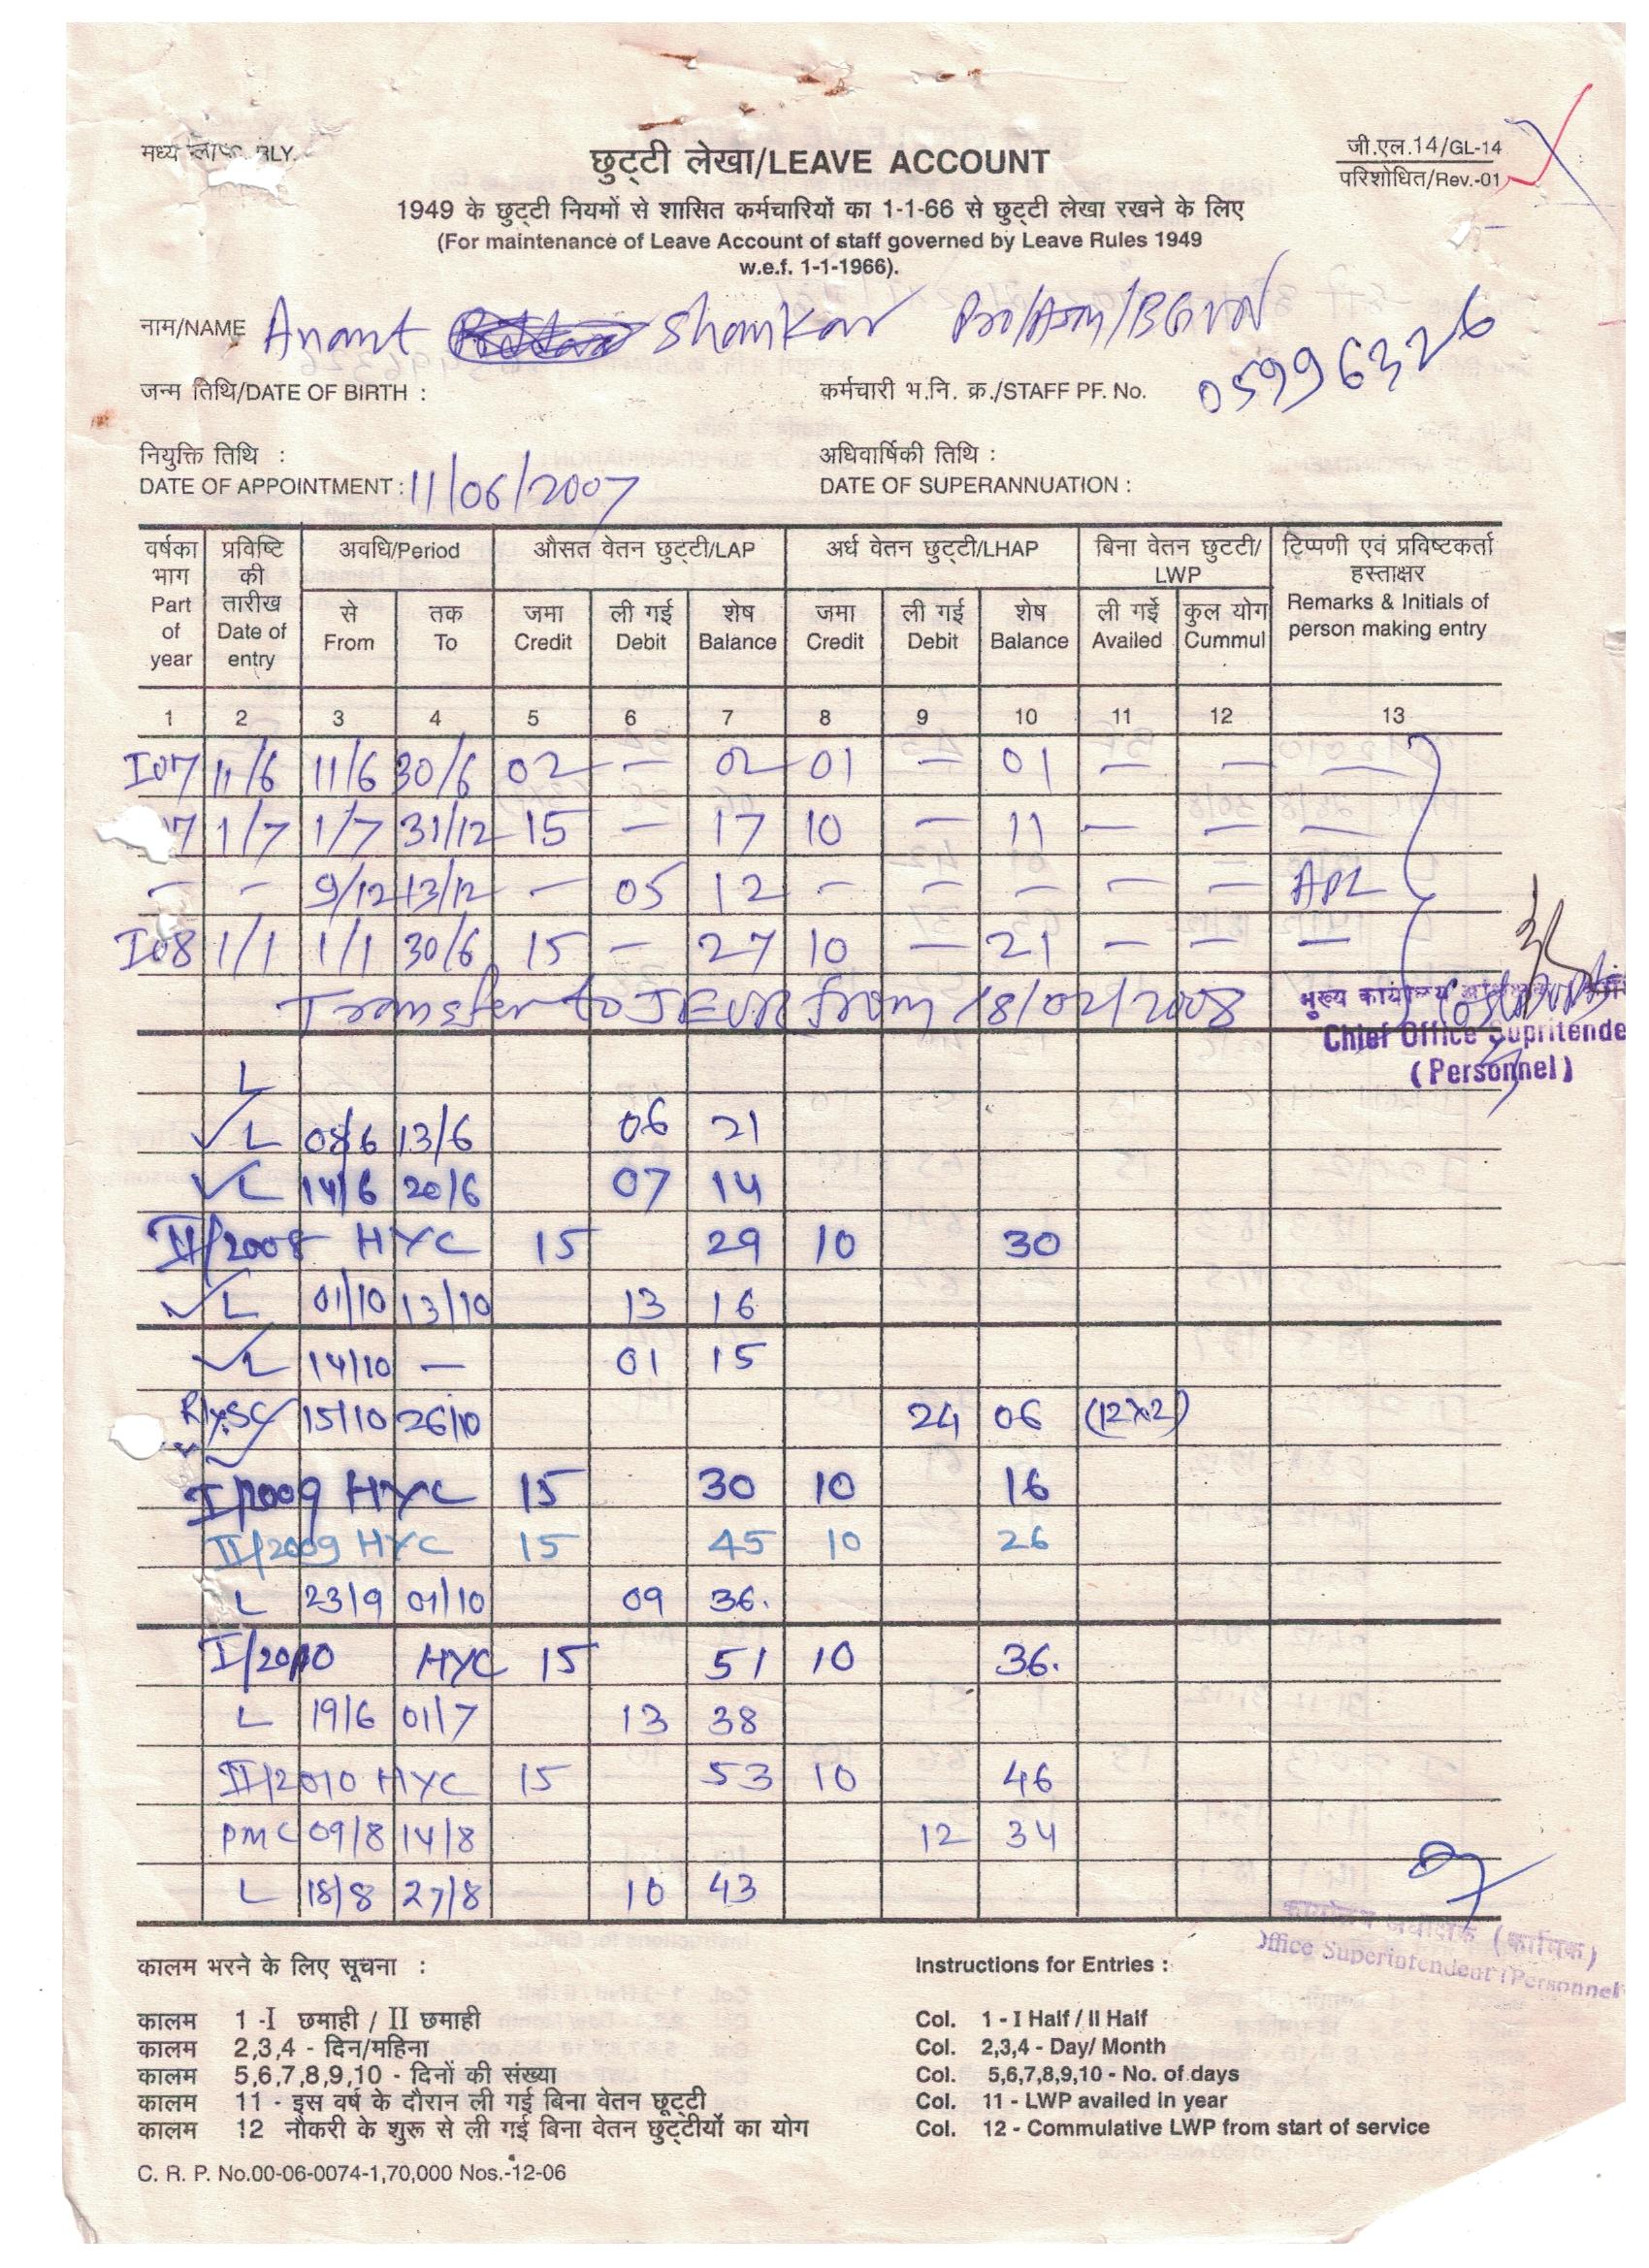 मध्य RLY.
छुट्टी लेखा/LEAVE ACCOUNT
जी.एल.14/GL-14
परिशोधित/Rev.-01
1949 के छुट्टी नियमों से शासित कर्मचारियों का 1-1-66 से छुट्टी लेखा रखने के लिए
(For maintenance of Leave Account of staff governed by Leave Rules 1949
w.e.f. 1-1-1966).
नाम/NAME Anant Shankar Pro/Asm/BGVN
जन्म तिथि/DATE OF BIRTH :
कर्मचारी भ.नि. क्र./STAFF PF. No. 05996326
नियुक्ति तिथि :
DATE OF APPOINTMENT : 11/06/2007
अधिवार्षिकी तिथि :
DATE OF SUPERANNUATION :
वर्षका भाग Part of year
प्रविष्टि की तारीख Date of entry
अवधि/Period
औसत वेतन छुट्टी/LAP
अर्ध वेतन छुट्टी/LHAP
बिना वेतन छुटटी/ LWP
टिप्पणी एवं प्रविष्टकर्ता हस्ताक्षर Remarks & Initials of person making entry
से From तक To जमा Credit ली गई Debit शेष Balance जमा Credit ली गई Debit शेष Balance ली गई Availed कुल योग Cummul
1 2 3 4 5 6 7 8 9 10 11 12 13
I07 11/6 11/6 30/6 02 – 02 01 – 01 – – –
07 1/7 1/7 31/12 15 – 17 10 – 11 – – –
– – 9/12 13/12 – 05 12 – – – – – APL
I08 1/1 1/1 30/6 15 – 27 10 – 21 – – –
Transfer to JEUR from 18/02/2008
मुख्य कार्यालय
Chief Office Supritende
(Personnel)
L
L 08/6 13/6 06 21
L 14/6 20/6 07 14
II/2008 HYC 15 29 10 30
L 01/10 13/10 13 16
L 14/10 – 01 15
15/10 26/10 24 06 (12x2)
I/2009 HYC 15 30 10 16
II/2009 HYC 15 45 10 26
L 23/9 01/10 09 36.
I/2010 HYC 15 51 10 36.
L 19/6 01/7 13 38
II/2010 HYC 15 53 10 46
PMC 09/8 14/8 12 34
L 18/8 27/8 10 43
कार्यालय अधीक्षक (कार्मिक)
Office Superintendent (Personnel
कालम भरने के लिए सूचना :
कालम 1 -I छमाही / II छमाही
कालम 2,3,4 - दिन/महिना
कालम 5,6,7,8,9,10 - दिनों की संख्या
कालम 11 - इस वर्ष के दौरान ली गई बिना वेतन छूट्टी
कालम 12 नौकरी के शुरू से ली गई बिना वेतन छुट्टीयों का योग
Instructions for Entries :
Col. 1 - I Half / II Half
Col. 2,3,4 - Day/ Month
Col. 5,6,7,8,9,10 - No. of days
Col. 11 - LWP availed in year
Col. 12 - Commulative LWP from start of service
C. R. P. No.00-06-0074-1,70,000 Nos.-12-06